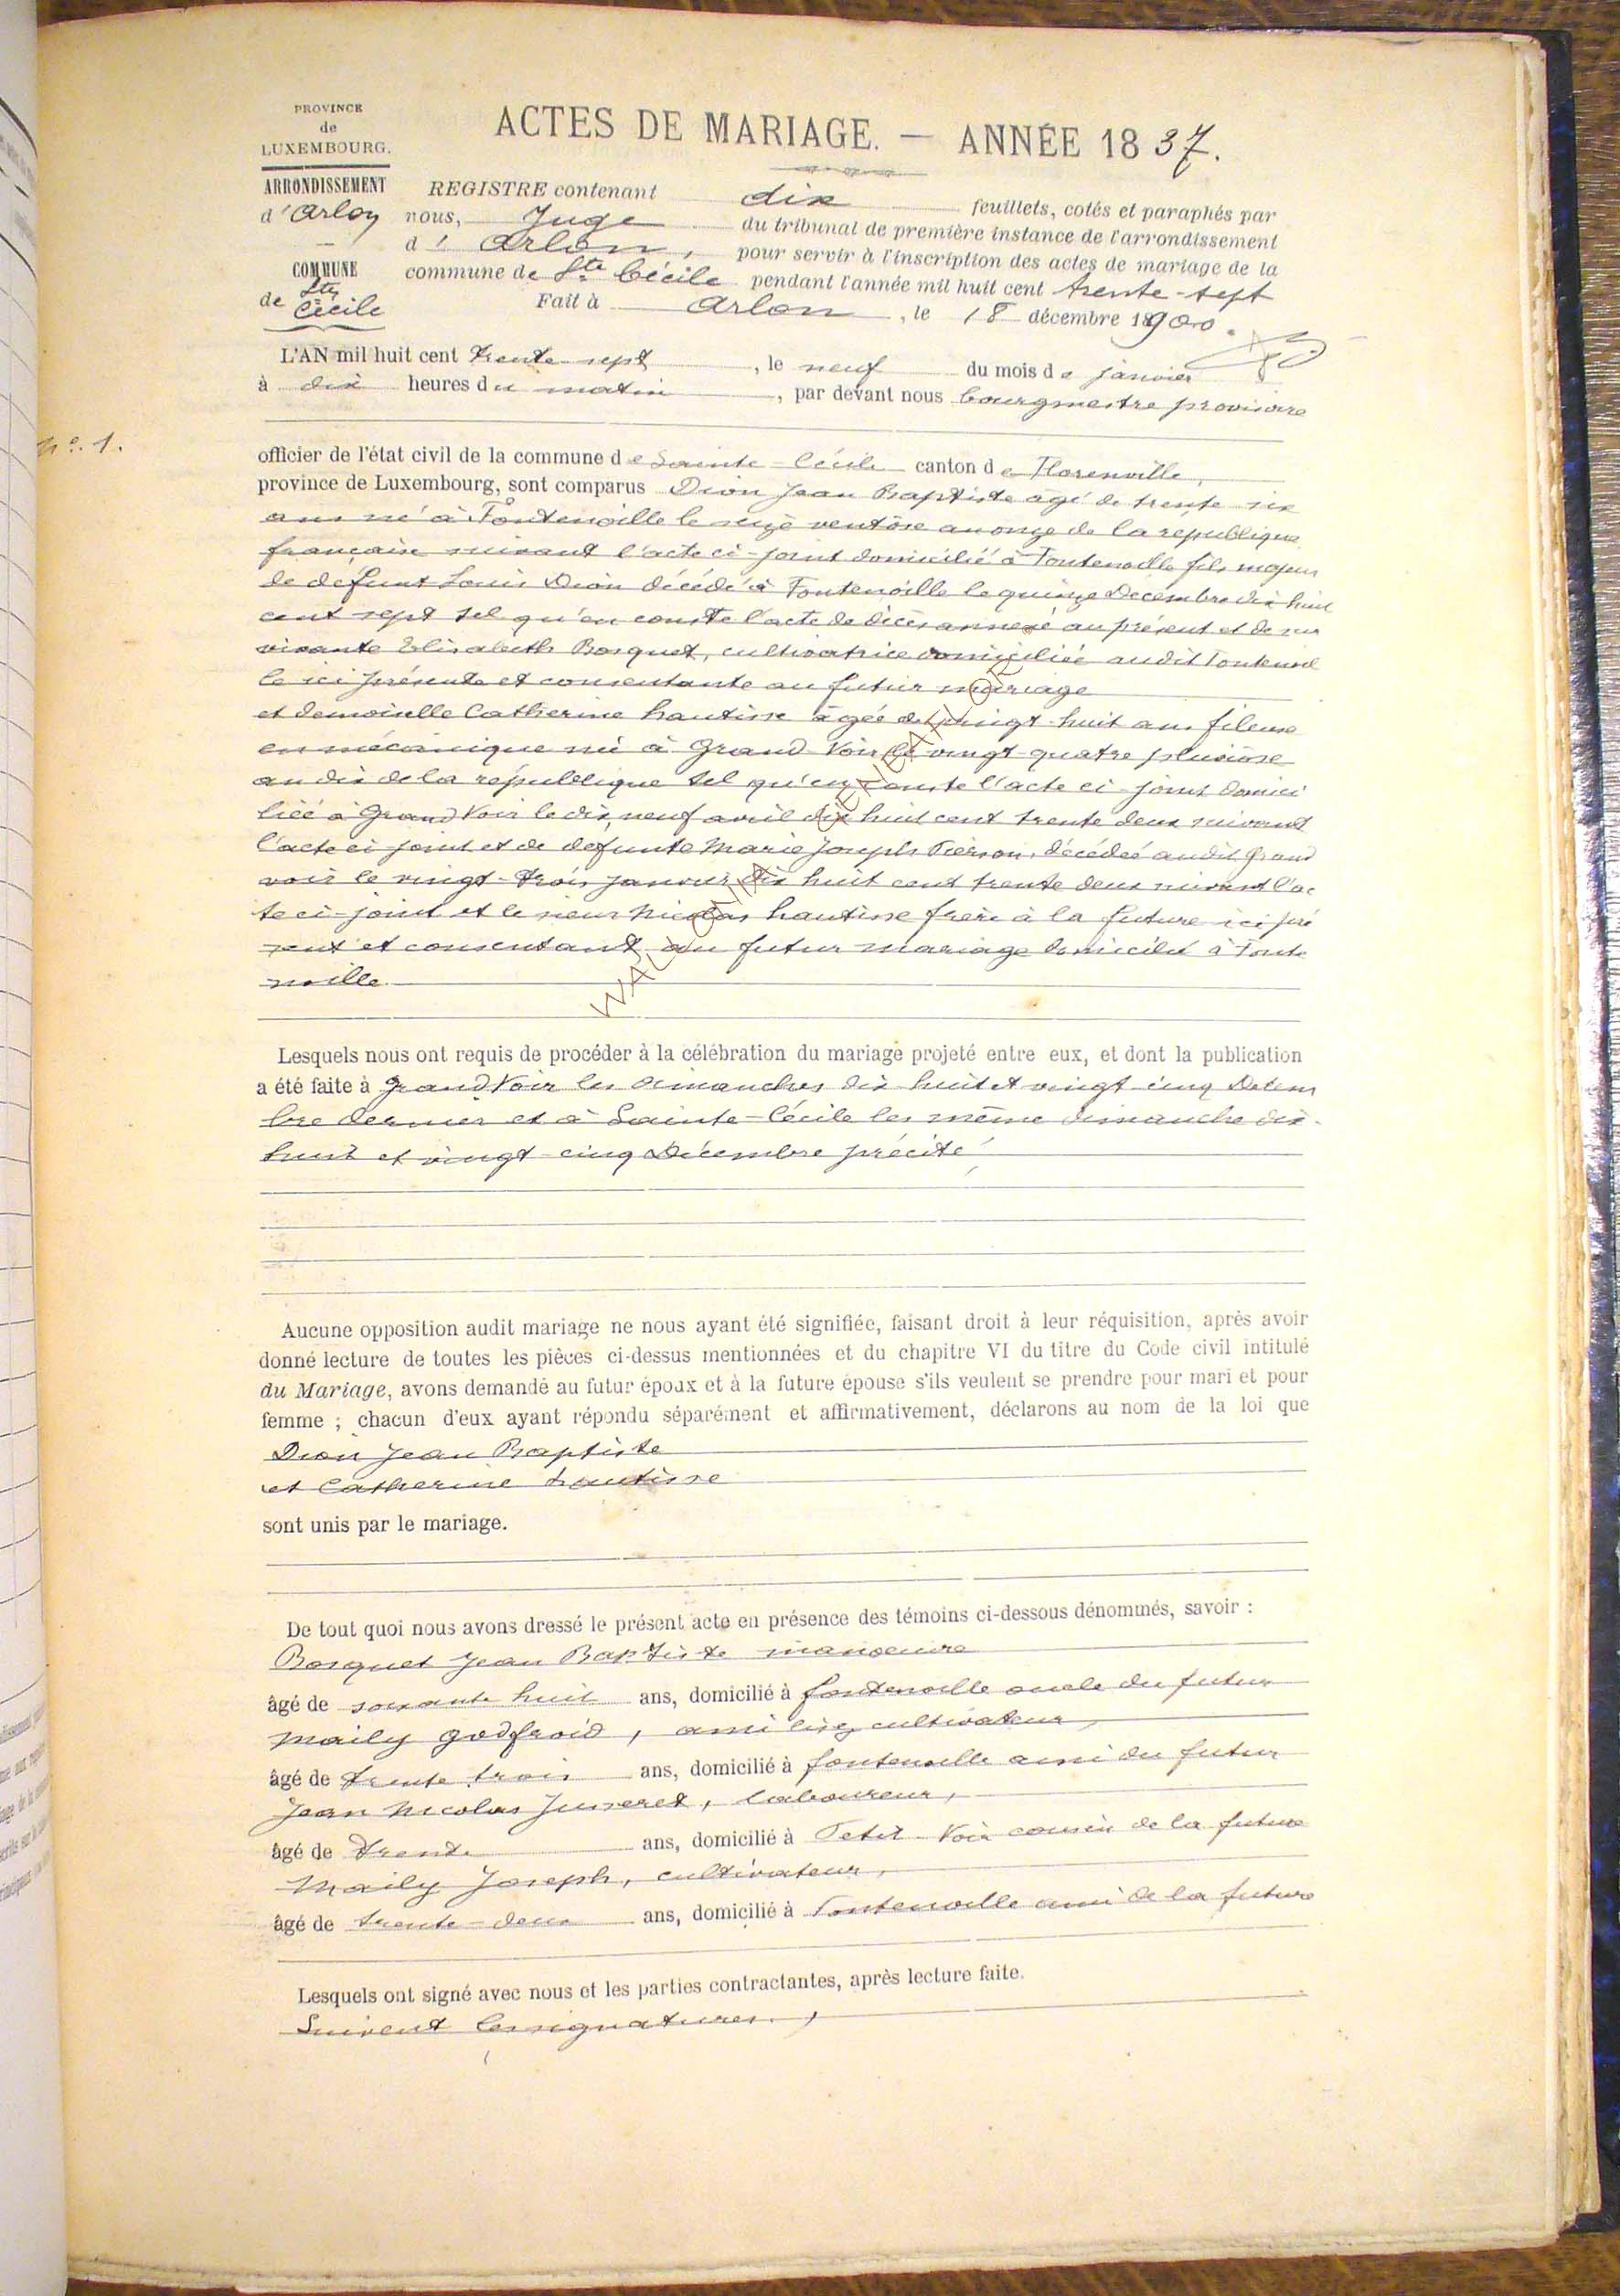 PROVINCE
de
LUXEMBOURG.
ARRONDISSEMENT
d'Arlon
COMMUNE
de Ste Cécile
ACTES DE MARIAGE. — ANNÉE 1837.
REGISTRE contenant dix feuillets, cotés et paraphés par
nous, Juge du tribunal de première instance de l'arrondissement
d'Arlon, pour servir à l'inscription des actes de mariage de la
commune de Ste Cécile pendant l'année mil huit cent trente-sept
Fait à Arlon, le 18 décembre 1900.
L'AN mil huit cent trente sept, le neuf du mois de janvier
à dix heures du matin, par devant nous bourgmestre provisoire
No. 1.
officier de l'état civil de la commune de Sainte-Cécile canton de Florenville,
province de Luxembourg, sont comparus Dion Jean Baptiste âgé de trente six
ans né à Fontenoille le seize ventôse an onze de la republique
française suivant l'acte ci-joint domicilié à Fontenoille fils majeur
de défunt Louis Dion décédé à Fontenoille le quinze Décembre dix huit
cent sept tel qu'en conste l'acte de décès annexé au présent et de sur
vivante Elisabeth Bosquet, cultivatrice domiciliée audit Fontenoil
le ici présente et consentante au futur mariage
et demoiselle Catherine hautisse âgée de vingt-huit ans fileuse
en mécanique né à Grand Voir le vingt-quatre pluviôse
an dix de la république tel qu'en conste l'acte ci-joint domici
liée à Grand Voir le dix neuf avril dix huit cent trente deux suivant
l'acte ci-joint et de defunte Marie Joseph Pierson, décédée audit Grand
voir le vingt-trois janvier dix huit cent trente deux suivant l'ac
te ci-joint et le sieur Nicolas hautisse frère à la future ici pré
sent et consentant au futur mariage domicilié à Fonte
noille
Lesquels nous ont requis de procéder à la célébration du mariage projeté entre eux, et dont la publication
a été faite à Grand Voir les dimanches dix huit et vingt-cinq Décem
bre dernier et à Sainte-Cécile les même dimanche dix-
huit et vingt-cinq Décembre précité
Aucune opposition audit mariage ne nous ayant été signifiée, faisant droit à leur réquisition, après avoir
donné lecture de toutes les pièces ci-dessus mentionnées et du chapitre VI du titre du Code civil intitulé
du Mariage, avons demandé au futur époux et à la future épouse s'ils veulent se prendre pour mari et pour
femme ; chacun d'eux ayant répondu séparément et affirmativement, déclarons au nom de la loi que
Dion Jean Baptiste
et Catherine hautisse
sont unis par le mariage.
De tout quoi nous avons dressé le présent acte en présence des témoins ci-dessous dénommés, savoir :
Bosquet Jean Baptiste manoeuvre
âgé de soixante huit ans, domicilié à fontenoille oncle du futur
Maily godfroid, cultivateur,
âgé de trente trois ans, domicilié à fontenoille ami du futur
Jean Nicolas Jusseret, laboureur,
âgé de trente ans, domicilié à Petit-Voir cousin de la future
Maily Joseph, cultivateur,
âgé de trente-deux ans, domicilié à Fontenoille ami de la future
Lesquels ont signé avec nous et les parties contractantes, après lecture faite.
Suivent les signatures.